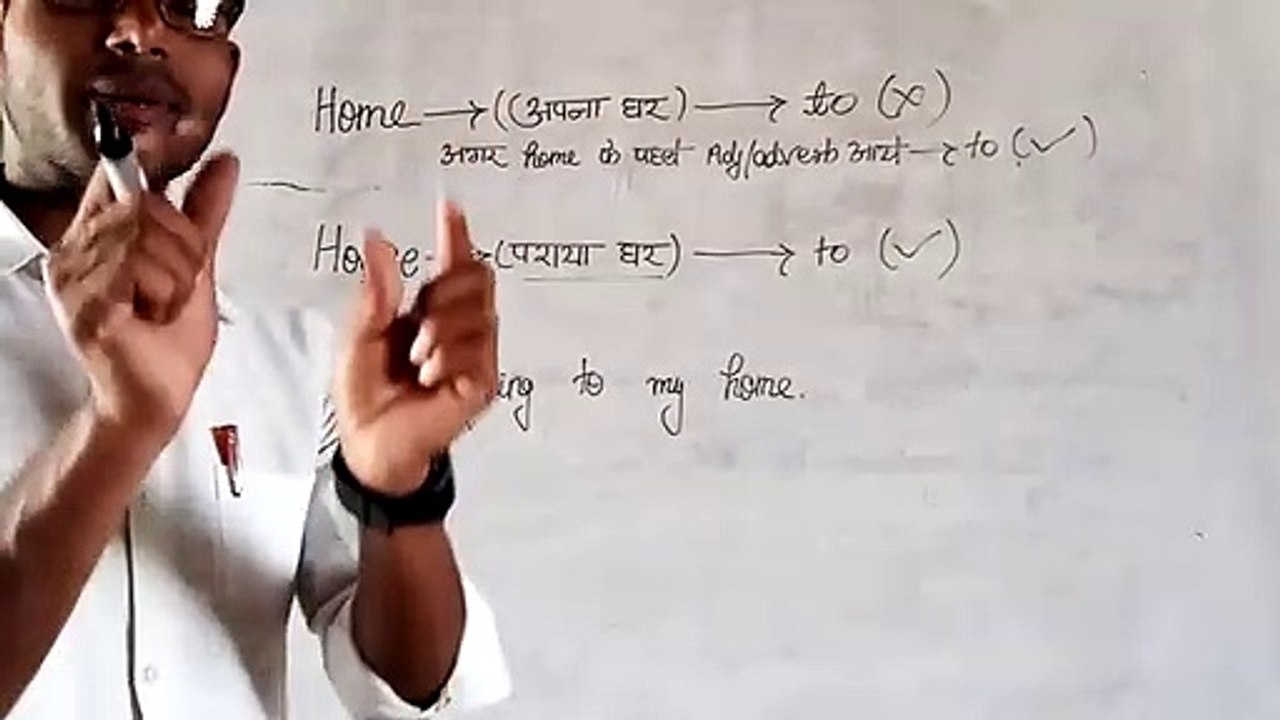 Home → ((अपना घर) → to (×)
अगर home के पहले Adj/adverb आये → to (✓)
Home → (पराया घर) → to (✓)
to my home.